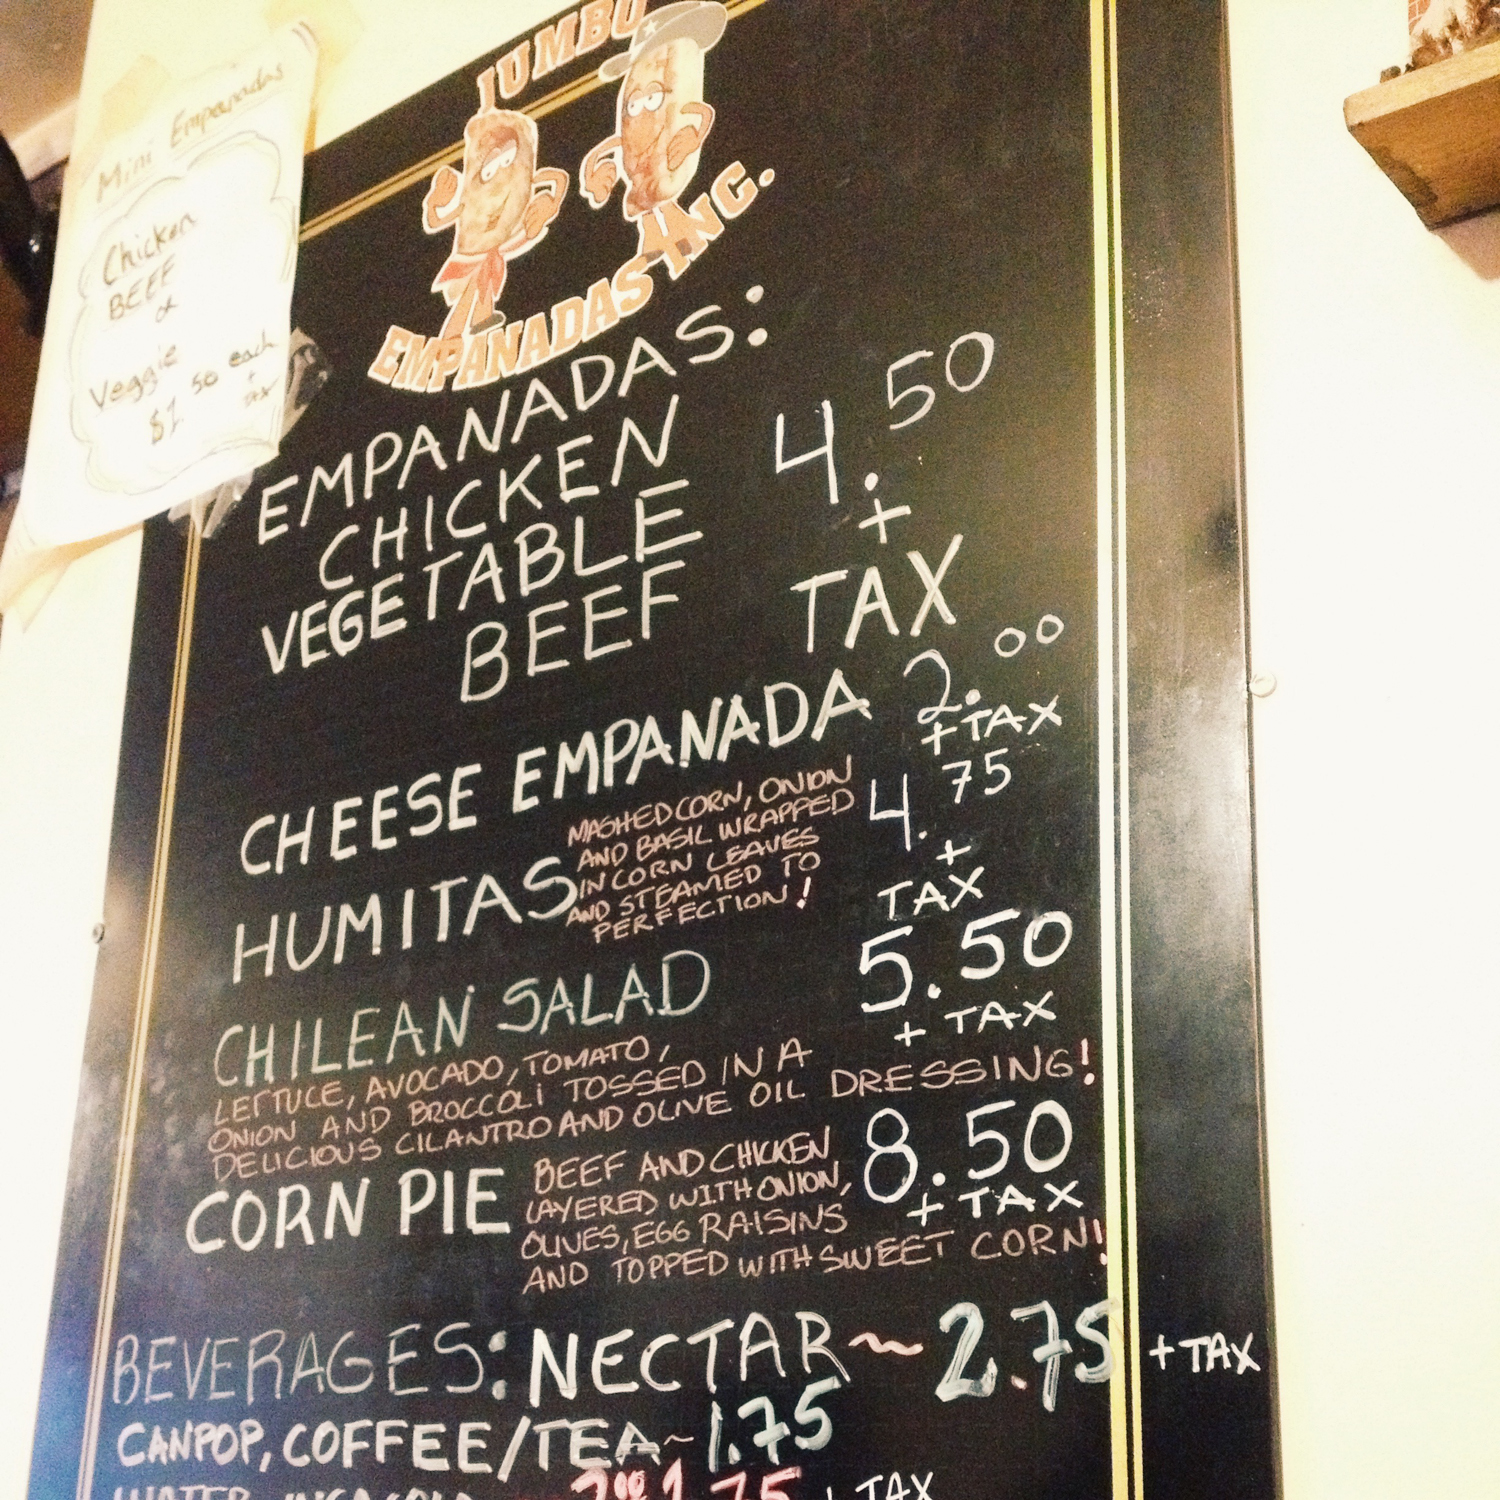 Mini Empanadas
Chicken
BEEF
or
Veggie
$1.50 each
+
TAX
JUMBO
EMPANADAS INC.
EMPANADAS:
CHICKEN
VEGETABLE
BEEF
4.50
+
TAX
CHEESE EMPANADA 2.00
+TAX
HUMITAS
MASHED CORN, ONION
AND BASIL WRAPPED
IN CORN LEAVES
AND STEAMED TO
PERFECTION!
4.75
+
TAX
CHILEAN SALAD 5.50
+ TAX
LETTUCE, AVOCADO, TOMATO,
ONION AND BROCCOLI TOSSED IN A
DELICIOUS CILANTRO AND OLIVE OIL DRESSING!
CORN PIE
BEEF AND CHICKEN
LAYERED WITH ONION,
OLIVES, EGG RAISINS
AND TOPPED WITH SWEET CORN!
8.50
+ TAX
BEVERAGES: NECTAR ~ 2.75 + TAX
CANPOP, COFFEE/TEA ~ 1.75
WATER 1.75 + TAX